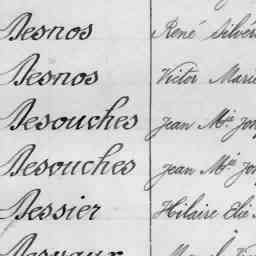 Desnos René Silvér
Desnos Victor Marie
Desouches Jean Mie Jos
Desouches Jean Mie Jos
Dessier Hilaire Elie
Desvaux